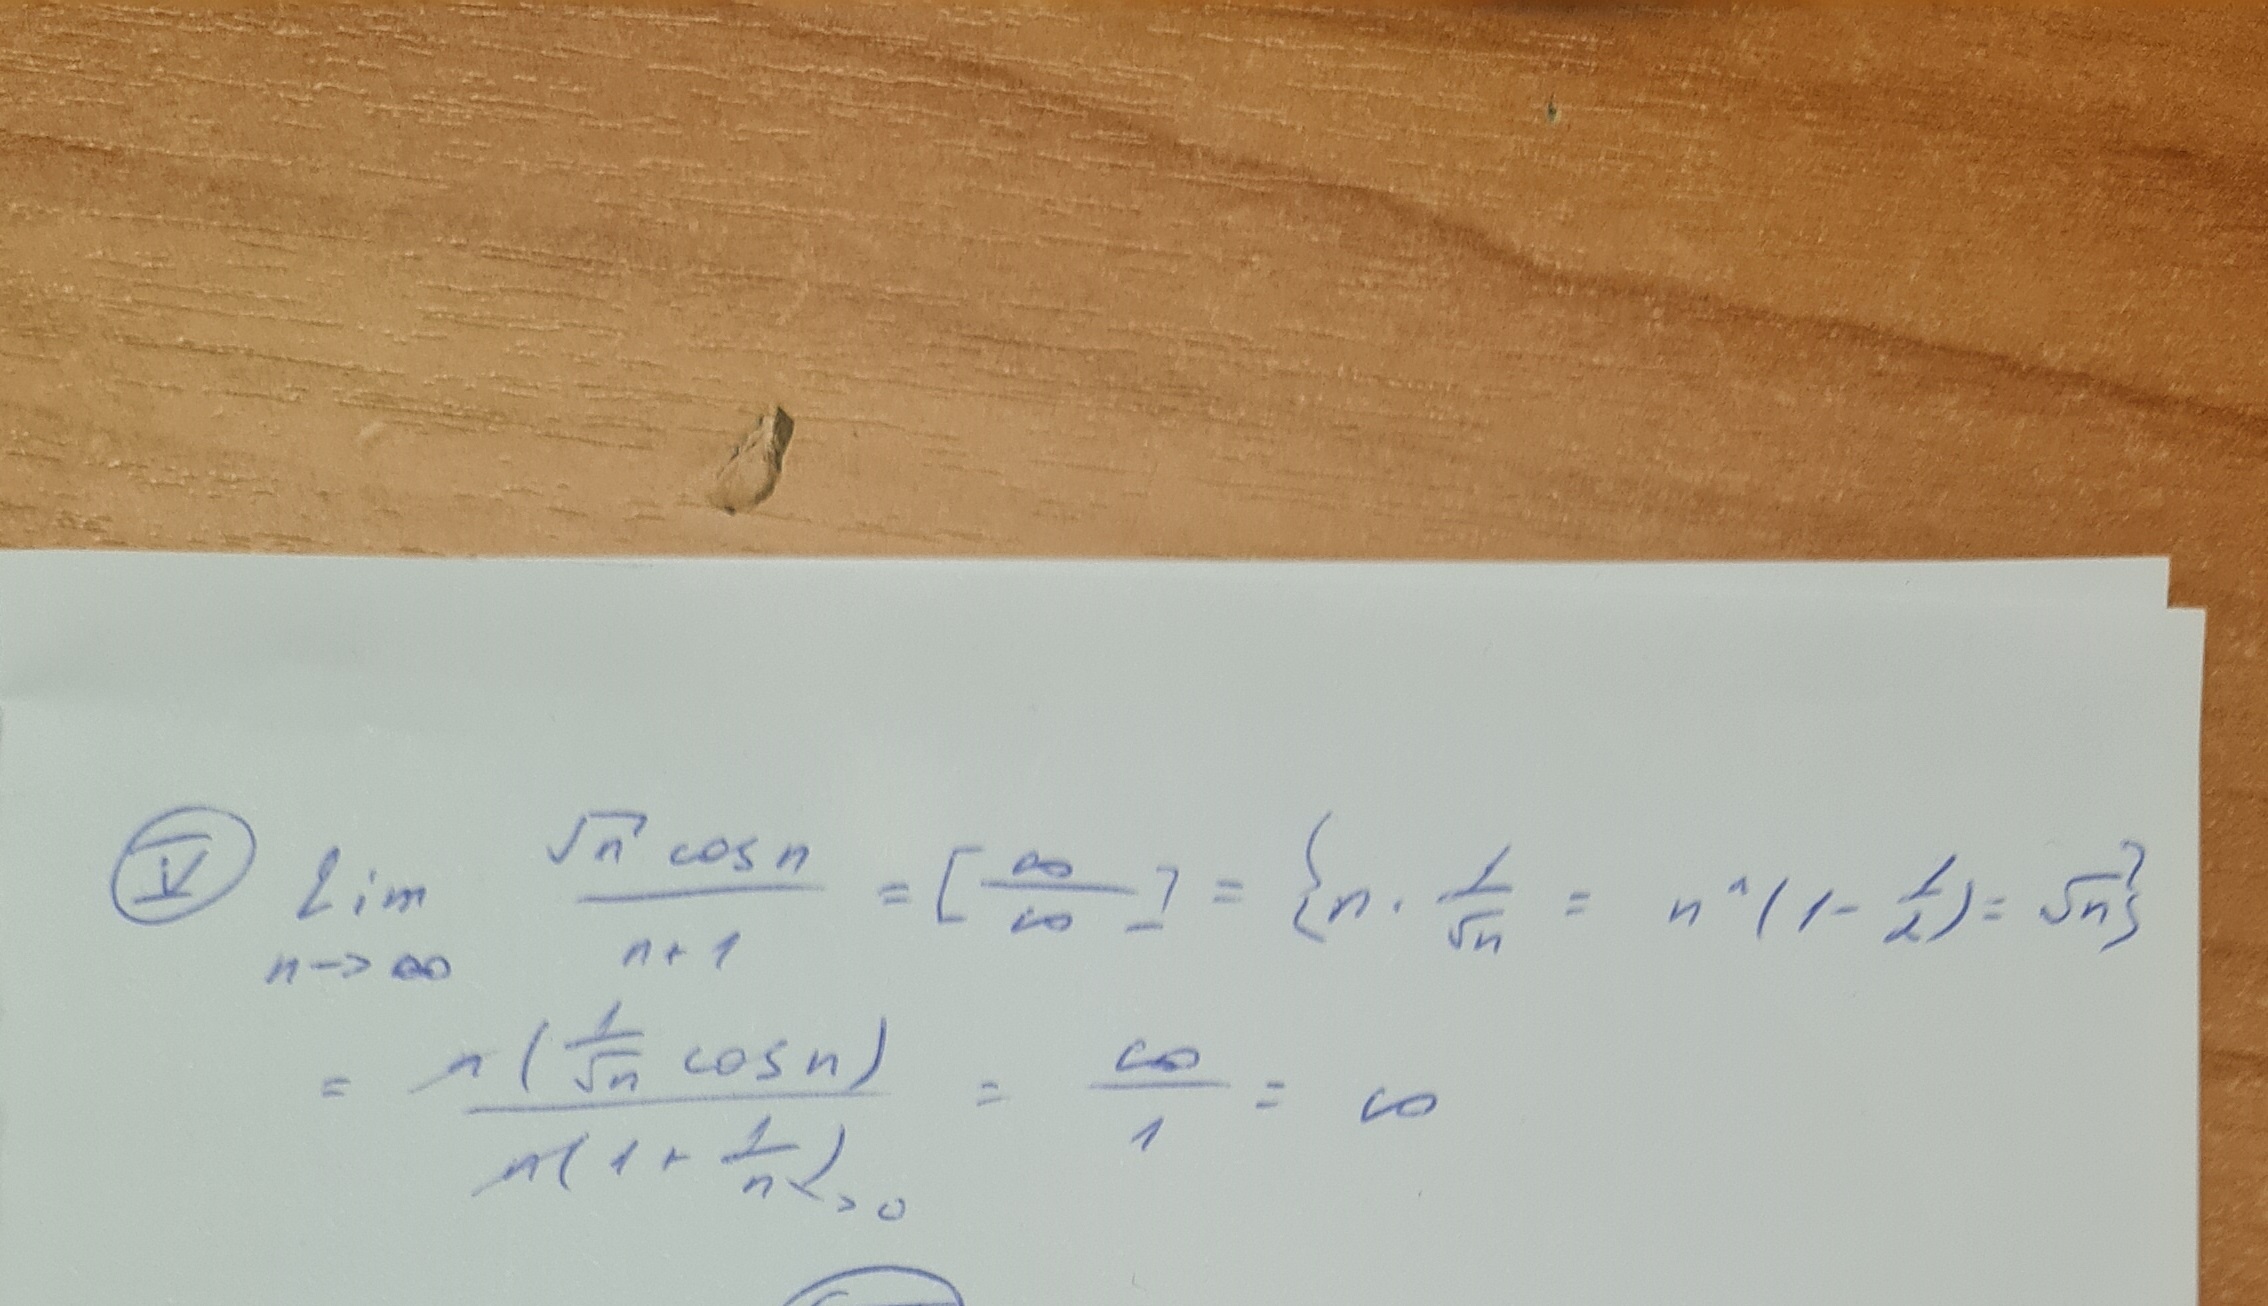 V lim n->∞ √n cos n / n+1 = [∞/∞] = {n · 1/√n = n^(1 - 1/2) = √n}
= n(1/√n cos n) / n(1 + 1/n)->0 = ∞/1 = ∞